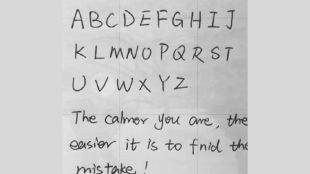 A B C D E F G H I J
K L M N O P Q R S T
U V W X Y Z
The calmer you are, the
easier it is to fnid the
mistake!